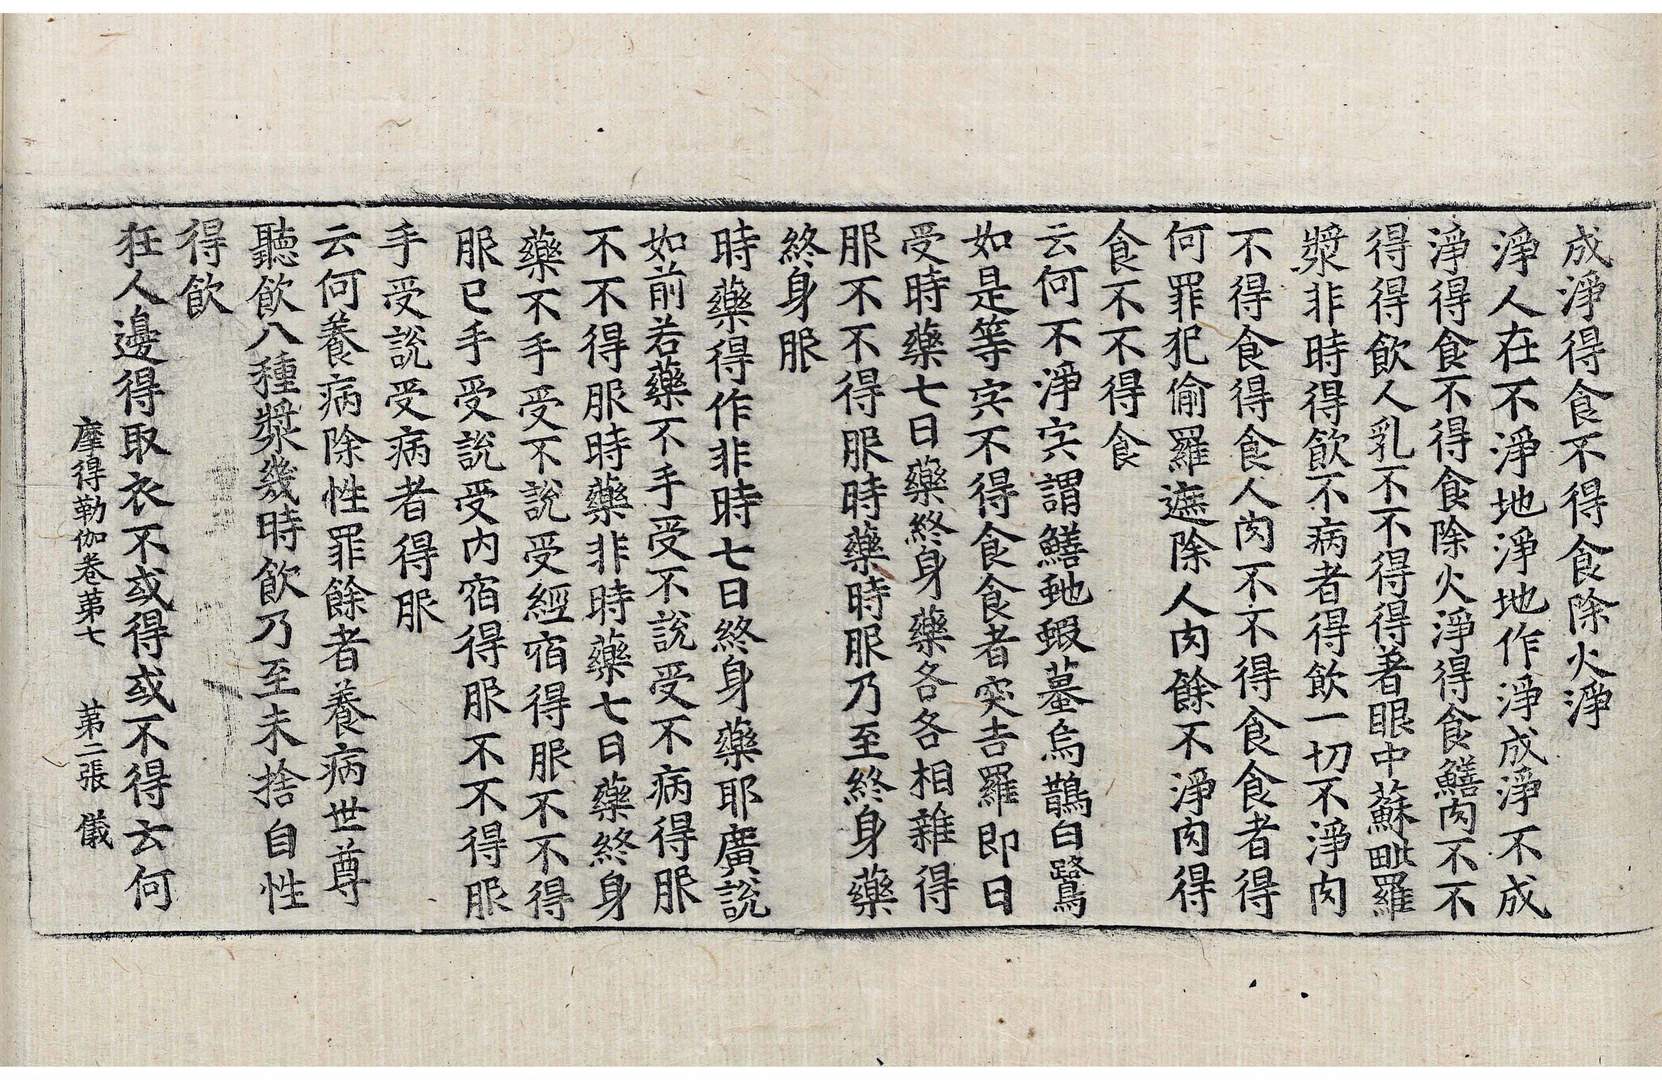 成淨得食不得食除火淨
淨人在不淨地淨地作淨成淨不成
淨得食不得食除火淨得食鱔肉不不
得得飲人乳不不得得著眼中蘇毗羅
漿非時得飲不病者得飲一切不淨肉
不得食得食人肉不不得食食者得
何罪犯偷羅遮除人肉餘不淨肉得
食不不得食
云何不淨肉謂鱔虵蝦蟇烏鵲白鷺
如是等肉不得食食者突吉羅即日
受時藥七日藥終身藥各各相雜得
服不不得服時藥時服乃至終身藥
終身服
時藥得作非時七日終身藥耶廣說
如前若藥不手受不說受不病得服
不不得服時藥非時藥七日藥終身
藥不手受不說受經宿得服不不得
服已手受說受內宿得服不不得服
手受說受病者得服
云何養病除性罪餘者養病世尊
聽飲八種漿幾時飲乃至未捨自性
得飲
狂人邊得取衣不或得或不得云何
摩得勒伽卷第七 第二張 儀